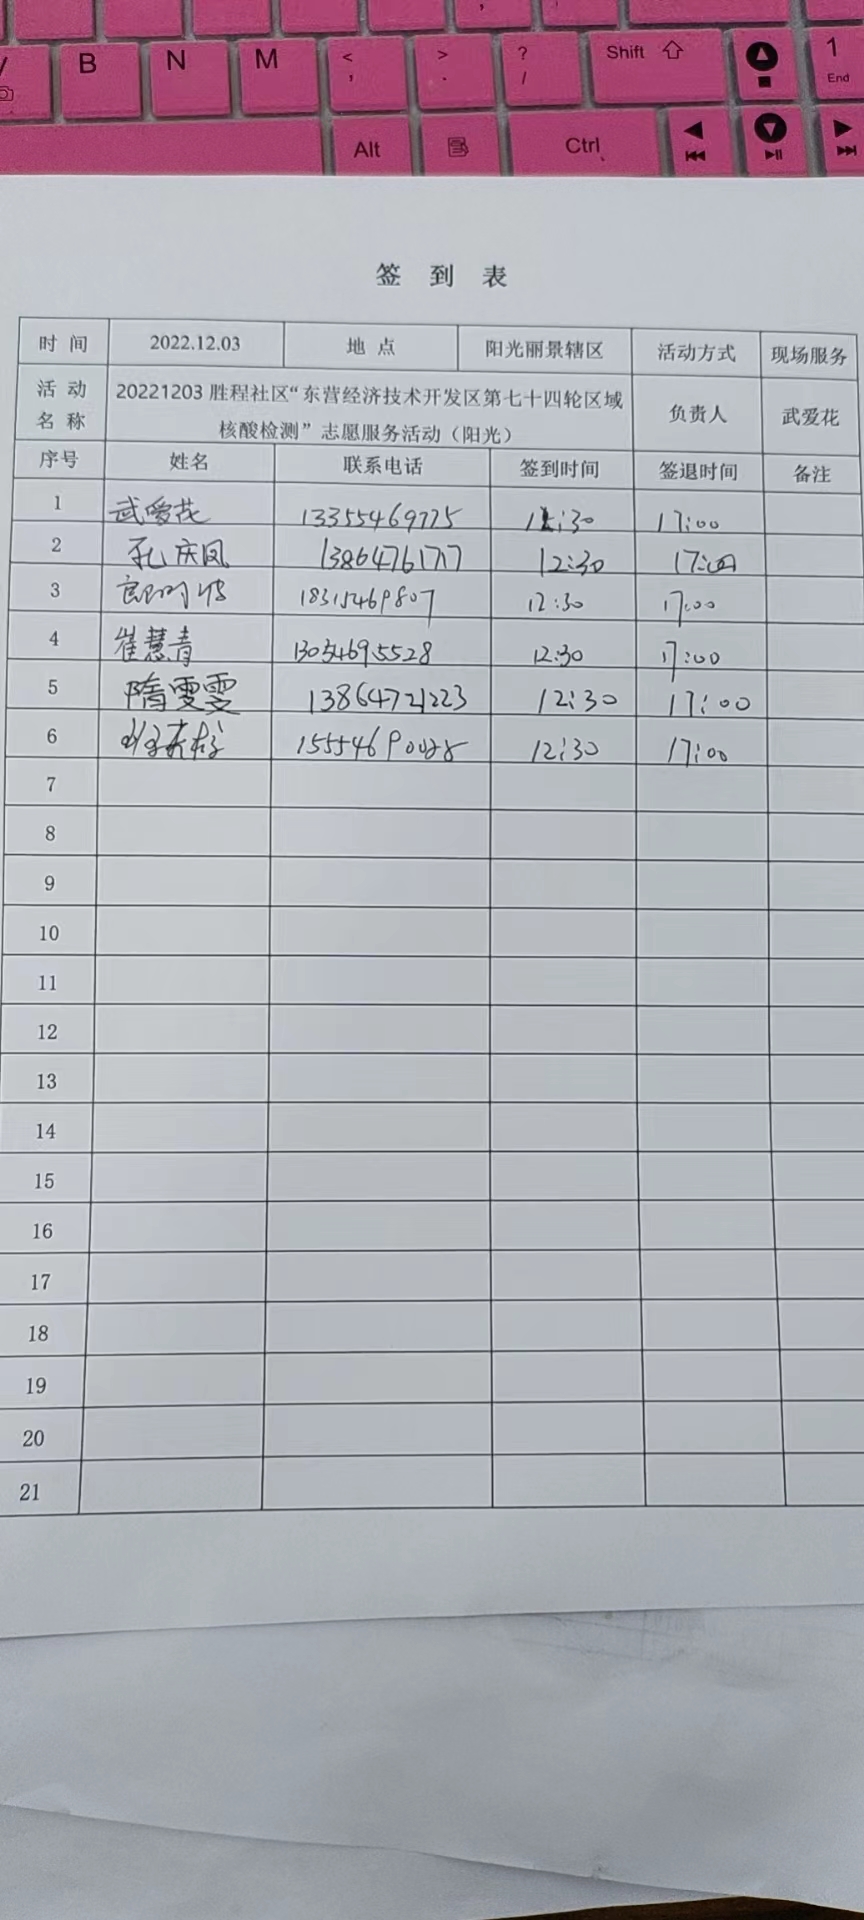 B N M < , > . ? / Shift 1 End
Alt Ctrl
签 到 表
时 间 2022.12.03 地 点 阳光丽景辖区 活动方式 现场服务
活 动 名 称 20221203 胜程社区“东营经济技术开发区第七十四轮区域 负责人 武爱花
核酸检测”志愿服务活动（阳光）
序号 姓名 联系电话 签到时间 签退时间 备注
1 武爱花 13355469775 12:30 17:00
2 孔庆凤 13864761717 12:30 17:00
3 18315469807 12:30 17:00
4 崔慧青 13054695528 12:30 17:00
5 隋雯雯 13864721223 12:30 17:00
6 12:30 17:00
7
8
9
10
11
12
13
14
15
16
17
18
19
20
21